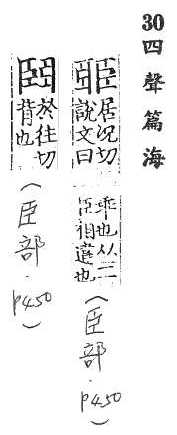 30四聲篇海
臦
居況切
說文曰
乖也从二
臣相違也
(臣部.P450)
於往切
背也
(臣部.P450)